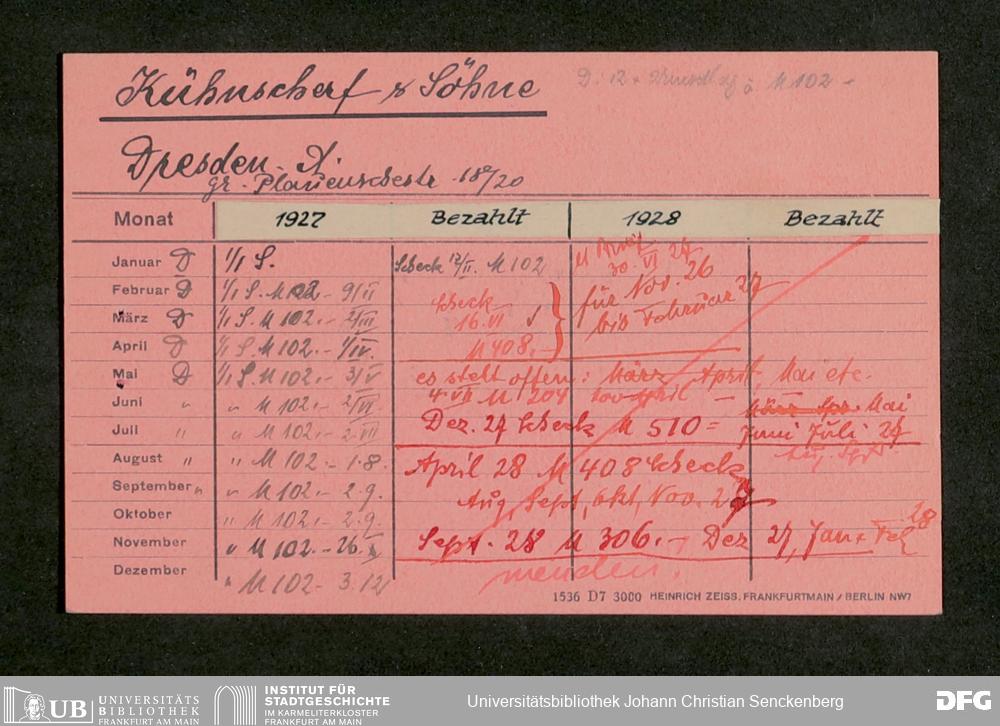 Kühnscherf & Söhne
D. 12 x à M 102 -
Dresden A.
gr. Plauenschestr 18/20
Monat 1927 Bezahlt 1928 Bezahlt
Januar D 1/1 S. Scheck 12/II. M 102
30. VI 27
Februar D 1/1 S. M 102 - 9/II Scheck für Nov. 26
März D 1/1 S. M 102.- 2/III 16.VI bis Februar 27
April D 1/1 S. M 102.- 1/IV. M 408.-
Mai D 1/1 S. M 102.- 3/V es steht offen: März April, Mai etc.
Juni " " M 102.- 2/VI 4.VII M 204 April - März Apr. Mai
Juli " " M 102.- 2.VII Dez. 27 Scheck M 510 = Juni Juli 27
Aug. Spt.
August " " M 102.- 1.8. April 28 M 408 Scheck
September " " M 102.- 2.9. Aug, Sept, Okt, Nov. 27
Oktober " M 102.- 2.9.
November " M 102.- 26.X Sept. 28 M 306.- Dez 27, Jan + Feb 28
Dezember " M 102- 3.12
1536 D7 3000 HEINRICH ZEISS, FRANKFURTMAIN / BERLIN NW7
UB UNIVERSITÄTS BIBLIOTHEK FRANKFURT AM MAIN
INSTITUT FÜR STADTGESCHICHTE IM KARMELITERKLOSTER FRANKFURT AM MAIN
Universitätsbibliothek Johann Christian Senckenberg
DFG